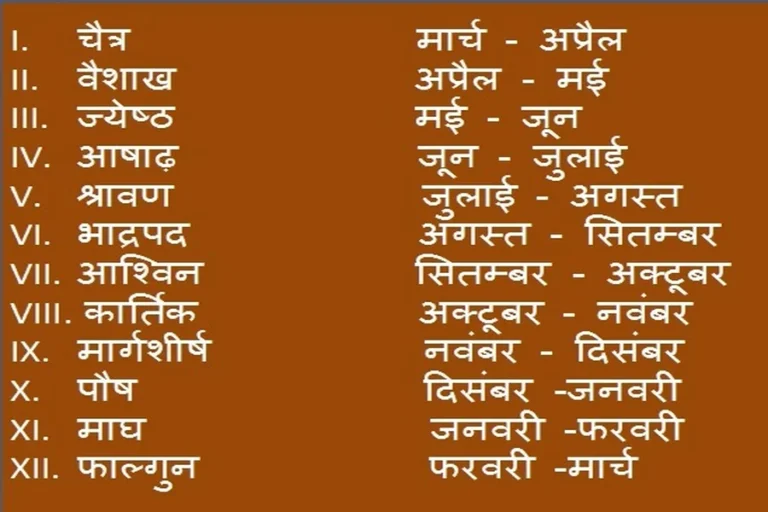 I. चैत्र मार्च - अप्रैल
II. वैशाख अप्रैल - मई
III. ज्येष्ठ मई - जून
IV. आषाढ़ जून - जुलाई
V. श्रावण जुलाई - अगस्त
VI. भाद्रपद अगस्त - सितम्बर
VII. आश्विन सितम्बर - अक्टूबर
VIII. कार्तिक अक्टूबर - नवंबर
IX. मार्गशीर्ष नवंबर - दिसंबर
X. पौष दिसंबर -जनवरी
XI. माघ जनवरी -फरवरी
XII. फाल्गुन फरवरी -मार्च